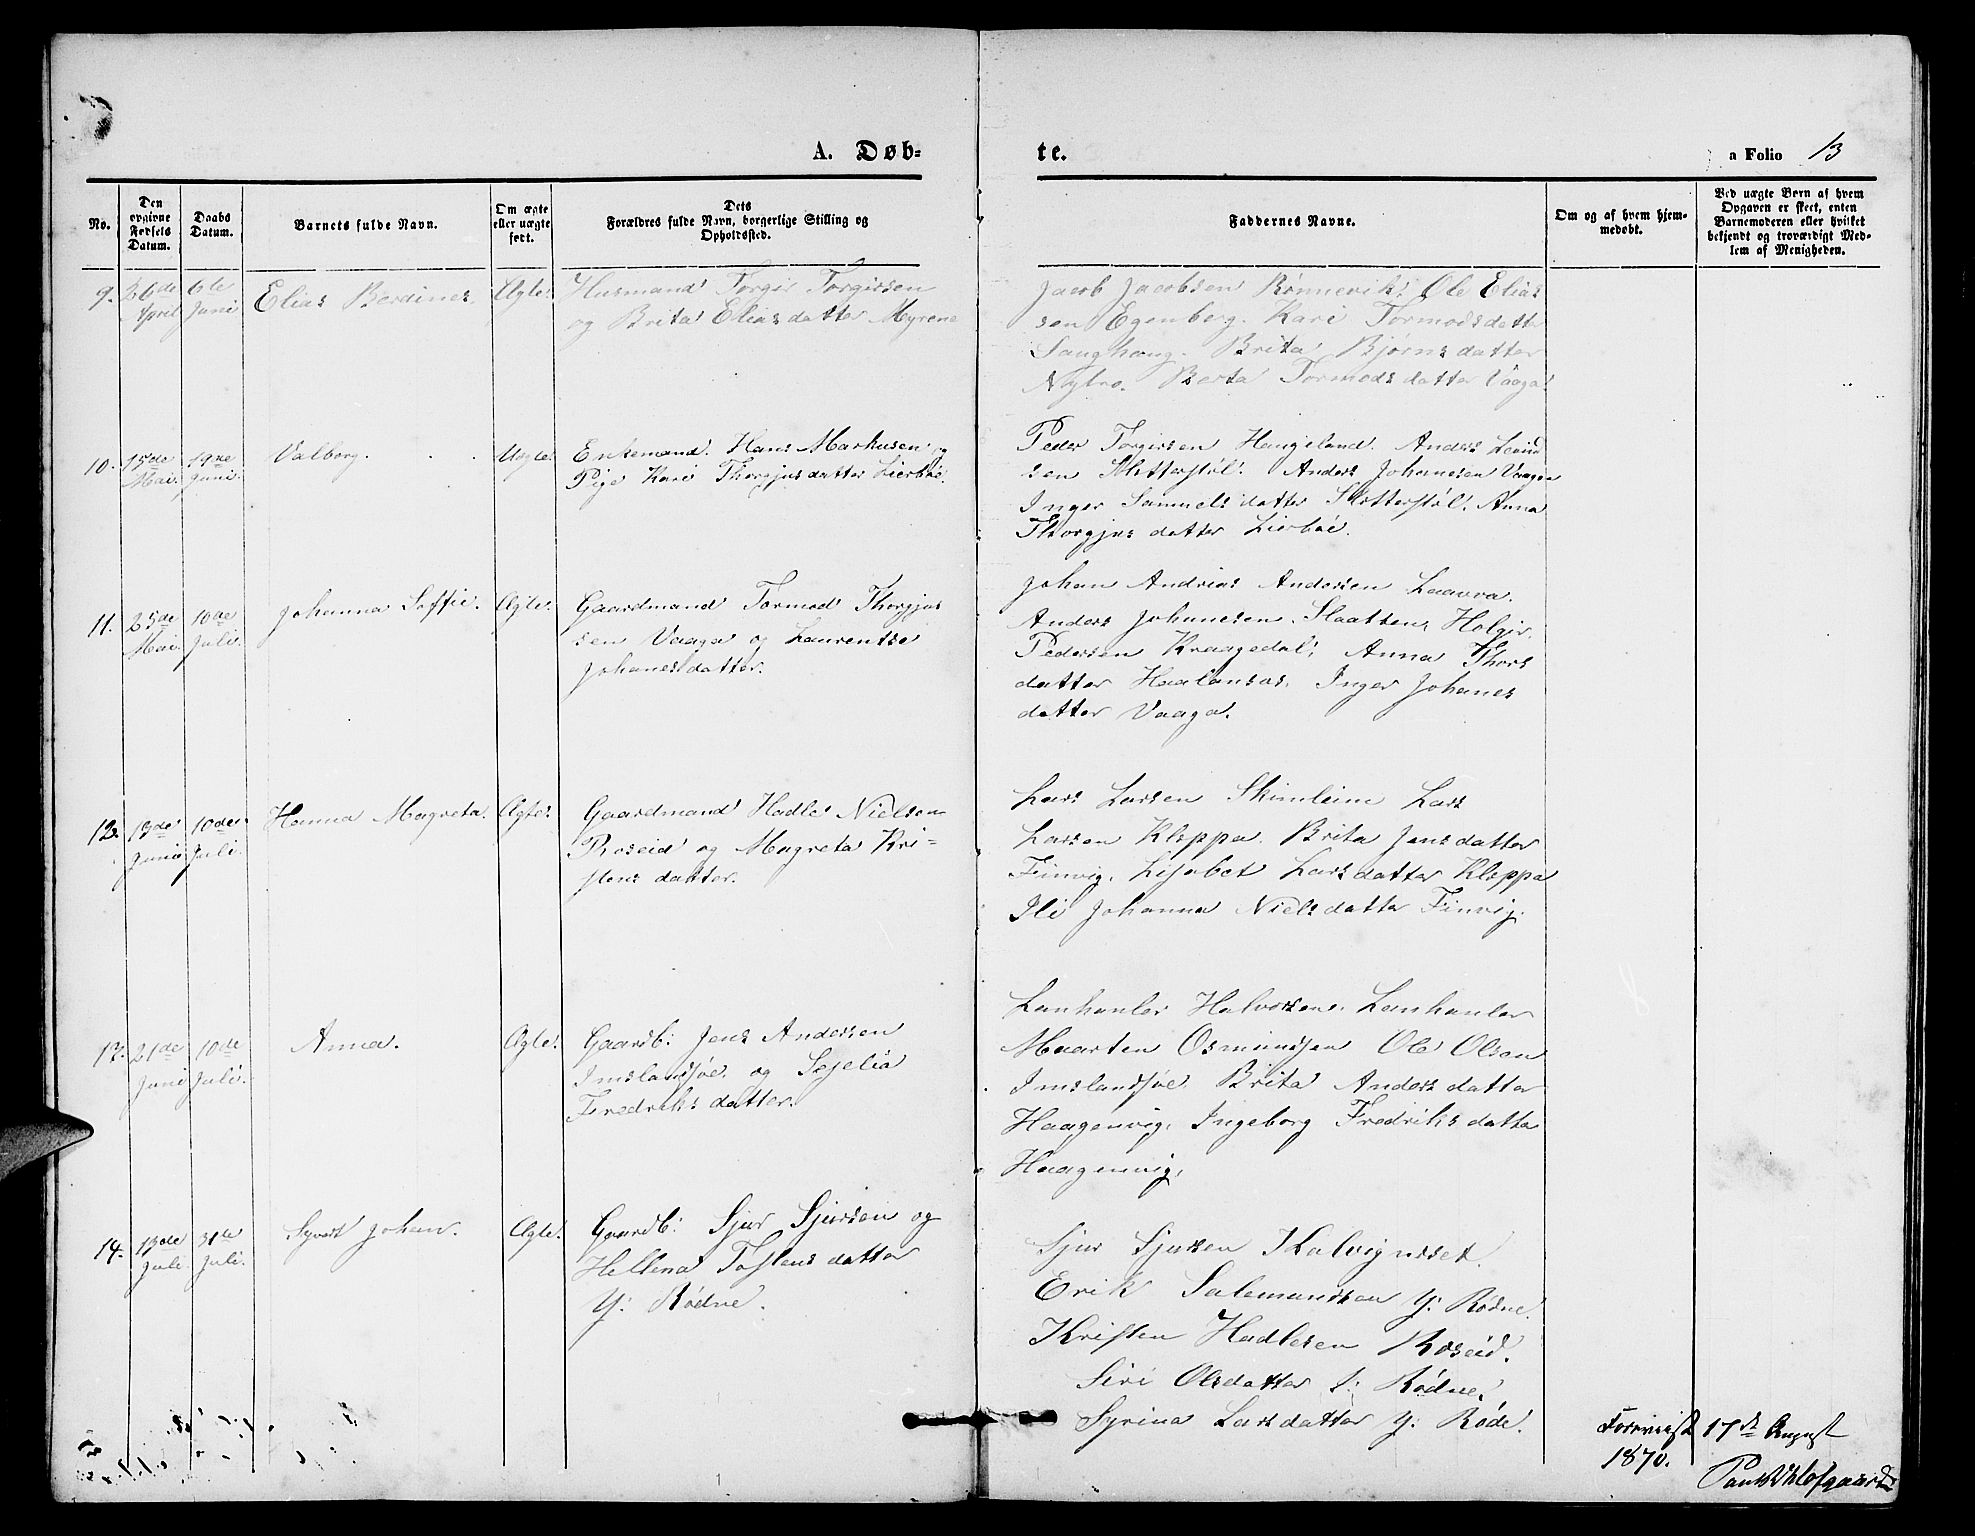 A. Døb=
te.
a Folio 13
No.
Den opgivne Fødsels Datum.
Daabs Datum.
Barnets fulde Navn.
Om ægte eller uægte født.
Dets Forældres fulde Navn, borgerlige Stilling og Opholdssted.
Faddernes Navne.
Om og af hvem hjemmedøbt.
Ved uægte Børn af hvem Opgaven er skeet, enten Barnemoderen eller hvilket bekjendt og troværdigt Medlem af Menigheden.
9. 26de April 6te Juni Elias Berdines. Ægte. Husmand Torgir Torgirsen
og Brita Eliasdatter Myrene
Jacob Jacobsen Rønnevik. Ole Elias
sen Egenberg. Kari Tormodsdatter
Sanghaug. Brita Bjørnsdatter
Nybro. Berta Tormodsdatter Vaaga.
10. 15de Mai. 19de Juni. Valborg. Uægte. Enkemand. Hans Markusen og
Pige Kari Thorgjusdatter Lierbøe.
Peder Torgirsen Haugeland. Anders
sen Slettestøl. Anders Johanesen Vaagen
Inger Samuelsdatter Slettestøl. Anna
Thorgjusdatter Lierbøe.
11. 25de Mai. 10de Juli. Johanna Soffie. Ægte. Gaardmand Tormod Thorgjus
sen Vaaga og Laurentse
Johanesdatter.
Johan Andrias Andersen Laavra.
Anders Johanesen. Holgir.
Pedersen Kraagedal. Anna Thors
datter Inger Johanes
datter Vaaga.
12. 19de Juni 10de Juli. Hanna Magreta. Ægte. Gaardmand Hadle Nielsen
Roseid og Magreta Kri-
stensdatter.
Lars Larsen Skimleim Lars
Larsen Kleppa. Brita Jensdatter
Finvig. Lisabet Larsdatter Kleppa
Ili Johanna Nielsdatter Finvig.
13. 21de Juni 10de Juli. Anna. Ægte. Gaardb: Jens Andersen
Imslandsøe. og Sejelia
Fredriksdatter.
Lenhanler Halvorsen. Lenhanler
Maarten Osmundsen Ole Olsen
Imslandsøe. Brita Andersdatter
Haagenvig. Ingeborg Fredriksdatter
Haagenvig.
14. 13de Juli. 31te Juli. Syvert Johan. Ægte. Gaardb: Sjur Sjursen og
Hellena Tostensdatter
Y: Rødne.
Sjur Sjursen Kalvigneset.
Erik Salemundsen Y: Rødne.
Kristen Hadlesen Roseid.
Siri Olsdatter I: Rødne.
Syrina Larsdatter Y: Røde.
Foreviist 17de August
1870.